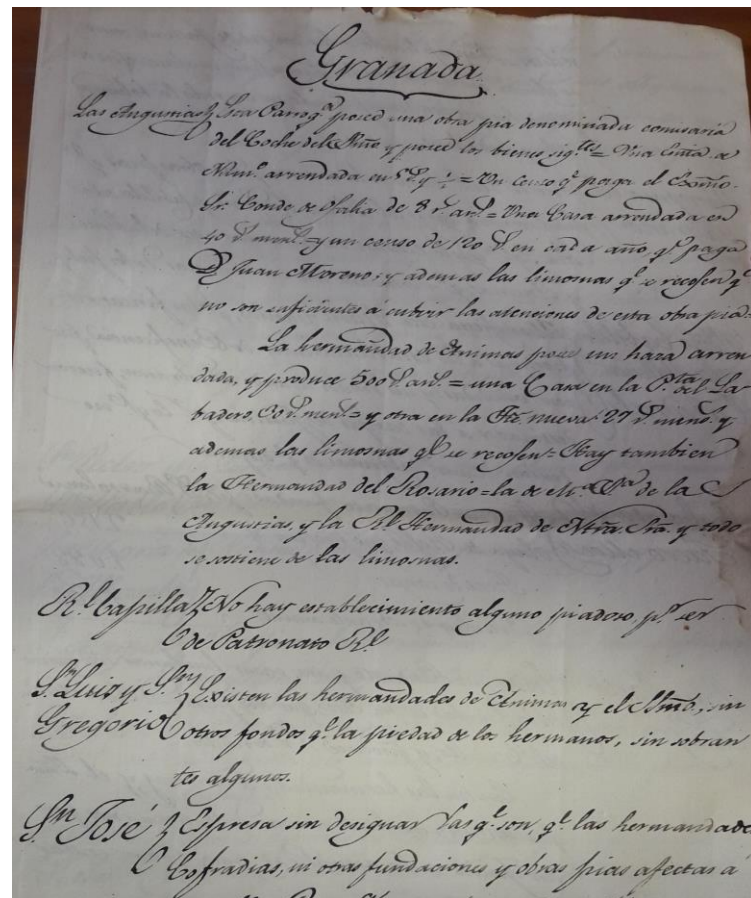 Granada.
Las Angustias} Esta Parroq.ª posee una obra pia denominada comisaria
del Coche del Ssmo y posee los bienes sig.tes = Una
Num.º arrendada en 5 r.s y ½ = Un Censo q.e paga el Exmo.
Sr. Conde de Ofalia de 8 r.s an.s = Una Casa arrendada en
40 r.s men.s = y un censo de 120 r.s en cada año q.e paga
D.n Juan Moreno; y ademas las limosnas q.e se recojen q.e
no son suficientes á cubrir las atenciones de esta obra pia =
La hermandad de Animas posee un haza arren
dada, y produce 500 r.s an.s = una Casa en la P.ta del La
badero, 60 r.s men.s = y otra en la nueva 27 r.s mens.s y
ademas las limosnas q.e se recojen = Hay tambien
la Hermandad del Rosario = la de de la
Angustias, y la R.l Hermandad de Ntra. Sra. y todo
se sostiene de las limosnas.
R.l Capilla} No hay establecimiento alguno piadoso, p.r ser
de Patronato R.l
S.n Luis y S.n} Existen las hermandades de Animas y el Ssmo, sin
Gregorio otros fondos q.e la piedad de los hermanos, sin sobran
tes algunos.
S.n José} Espresa sin designar las q.e son, q.e las hermandade
Cofradias, ni otras fundaciones y obras pias afectas á